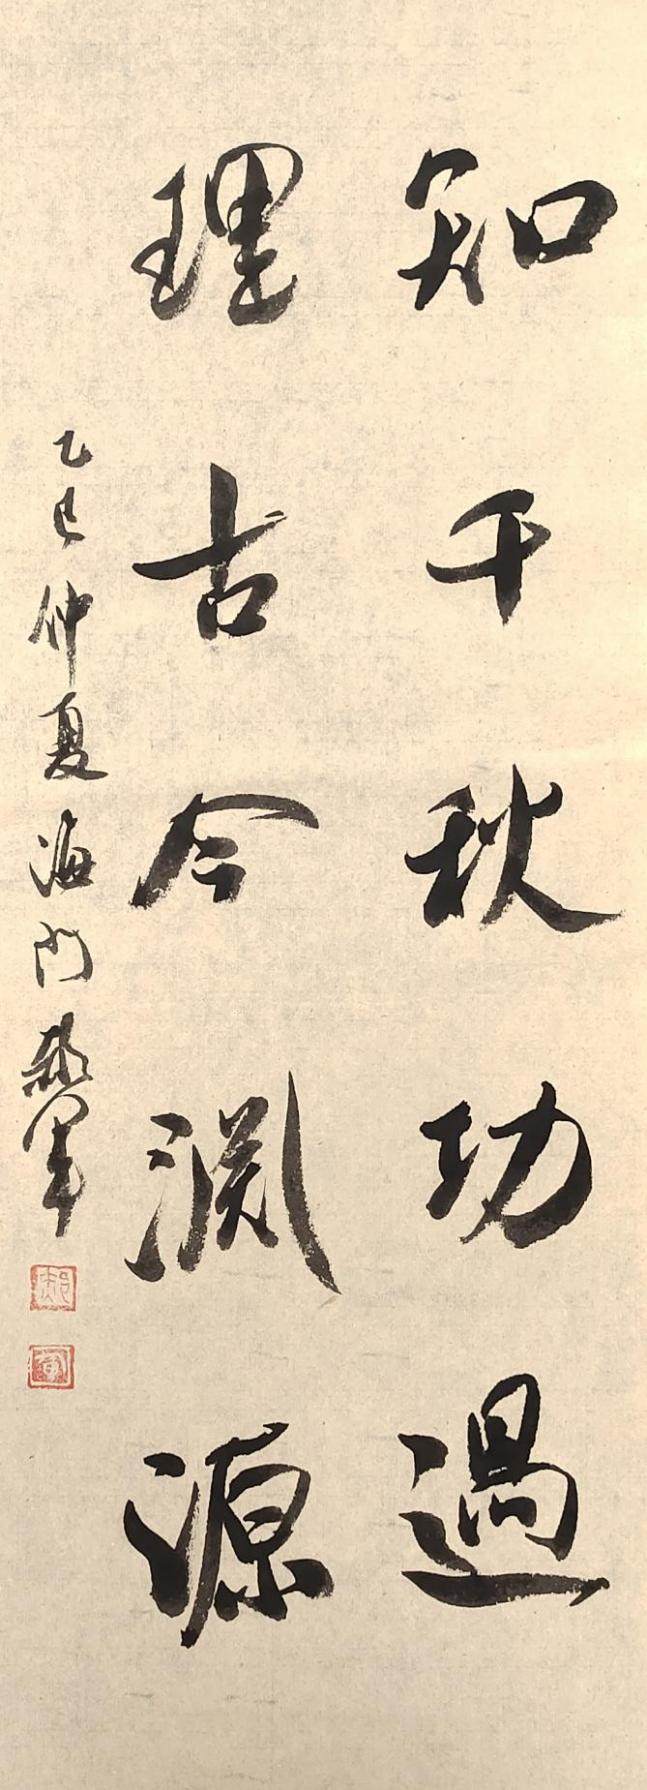 知千秋功過
理古今淵源
乙巳仲夏海門郝軍